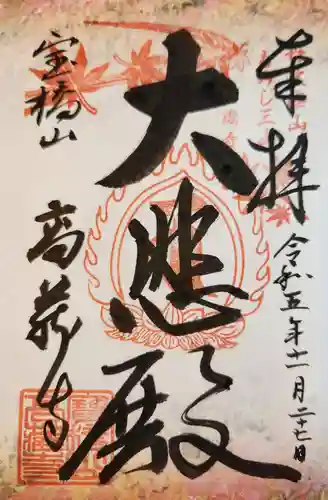 奉拝
令和五年十一月二十七日
大悲殿
宝橋山
高蔵寺